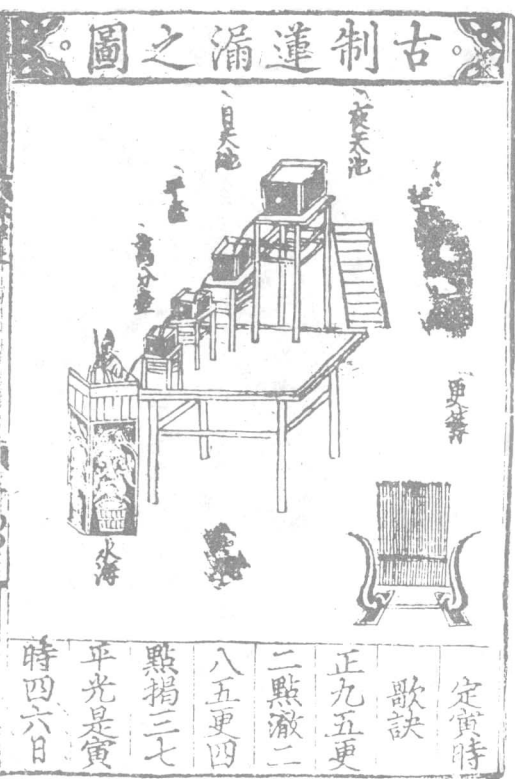 古制蓮漏之圖
夜天池
日天池
平壺
萬分壺
更籌
水海
定寅時
歌訣
正九五更
二點澈二
八五更四
點揭三七
平光是寅
時四六日